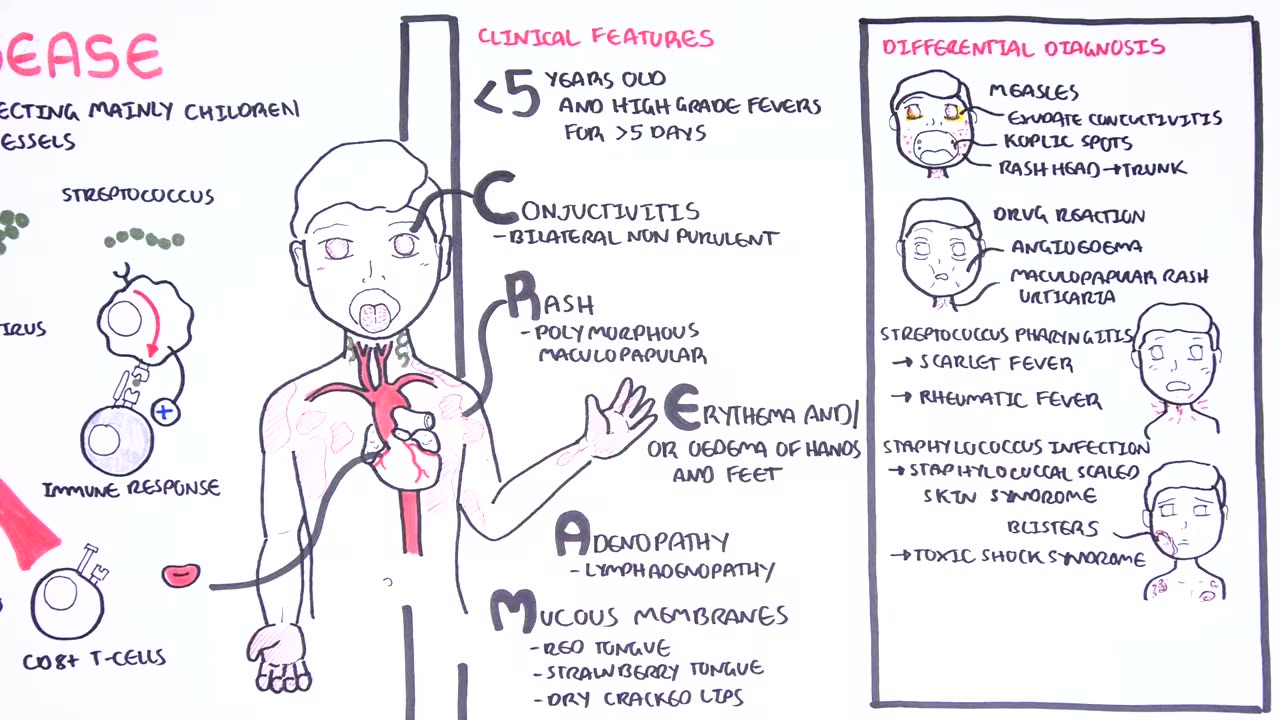 EASE
ECTING MAINLY CHILDREN
ESSELS
STREPTOCOCCUS
IRUS
IMMUNE RESPONSE
CD8+ T-CELLS
CLINICAL FEATURES
<5 YEARS OLD
AND HIGH GRADE FEVERS
FOR >5 DAYS
CONJUCTIVITIS
-BILATERAL NON PURULENT
RASH
-POLYMORPHOUS
MACULOPAPULAR
ERYTHEMA AND/
OR OEDEMA OF HANDS
AND FEET
ADENOPATHY
-LYMPHADENOPATHY
MUCOUS MEMBRANES
-RED TONGUE
-STRAWBERRY TONGUE
-DRY CRACKED LIPS
DIFFERENTIAL DIAGNOSIS
MEASLES
EXUDATE CONCUCTIVITIS
KOPLIC SPOTS
RASH HEAD→TRUNK
DRUG REACTION
ANGIOEDEMA
MACULOPAPULAR RASH
URTICARIA
STREPTOCOCCUS PHARYNGITIS
→ SCARLET FEVER
→ RHEUMATIC FEVER
STAPHYLOCOCCUS INFECTION
→STAPHYLOCOCCAL SCALED
SKIN SYNDROME
BLISTERS
→TOXIC SHOCK SYNDROME